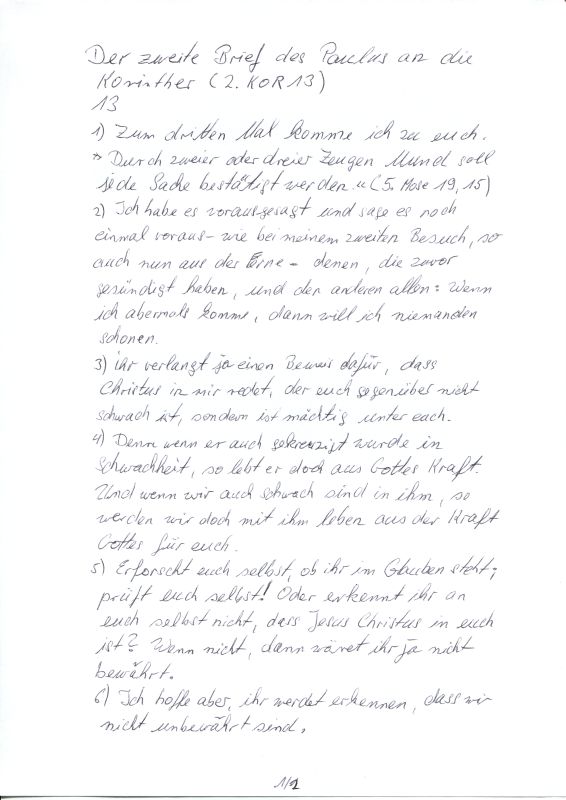 Der zweite Brief des Paulus an die
Korinther (2. KOR 13)
13
1) Zum dritten Mal komme ich zu euch.
"Durch zweier oder dreier Zeugen Mund soll
jede Sache bestätigt werden." (5. Mose 19, 15)
2) Ich habe es vorausgesagt und sage es noch
einmal voraus - wie bei meinem zweiten Besuch, so
auch nun aus der Ferne - denen, die zuvor
gesündigt haben, und den anderen allen: Wenn
ich abermals komme, dann will ich niemanden
schonen.
3) ihr verlangt ja einen Beweis dafür, dass
Christus in mir redet, der euch gegenüber nicht
schwach ist, sondern ist mächtig unter euch.
4) Denn wenn er auch gekreuzigt wurde in
Schwachheit, so lebt er doch aus Gottes Kraft.
Und wenn wir auch schwach sind in ihm, so
werden wir doch mit ihm leben aus der Kraft
Gottes für euch.
5) Erforscht euch selbst, ob ihr im Glauben steht;
prüft euch selbst! Oder erkennt ihr an
euch selbst nicht, dass Jesus Christus in euch
ist? Wenn nicht, dann wäret ihr ja nicht
bewährt.
6) Ich hoffe aber, ihr werdet erkennen, dass wir
nicht unbewährt sind.
1/2